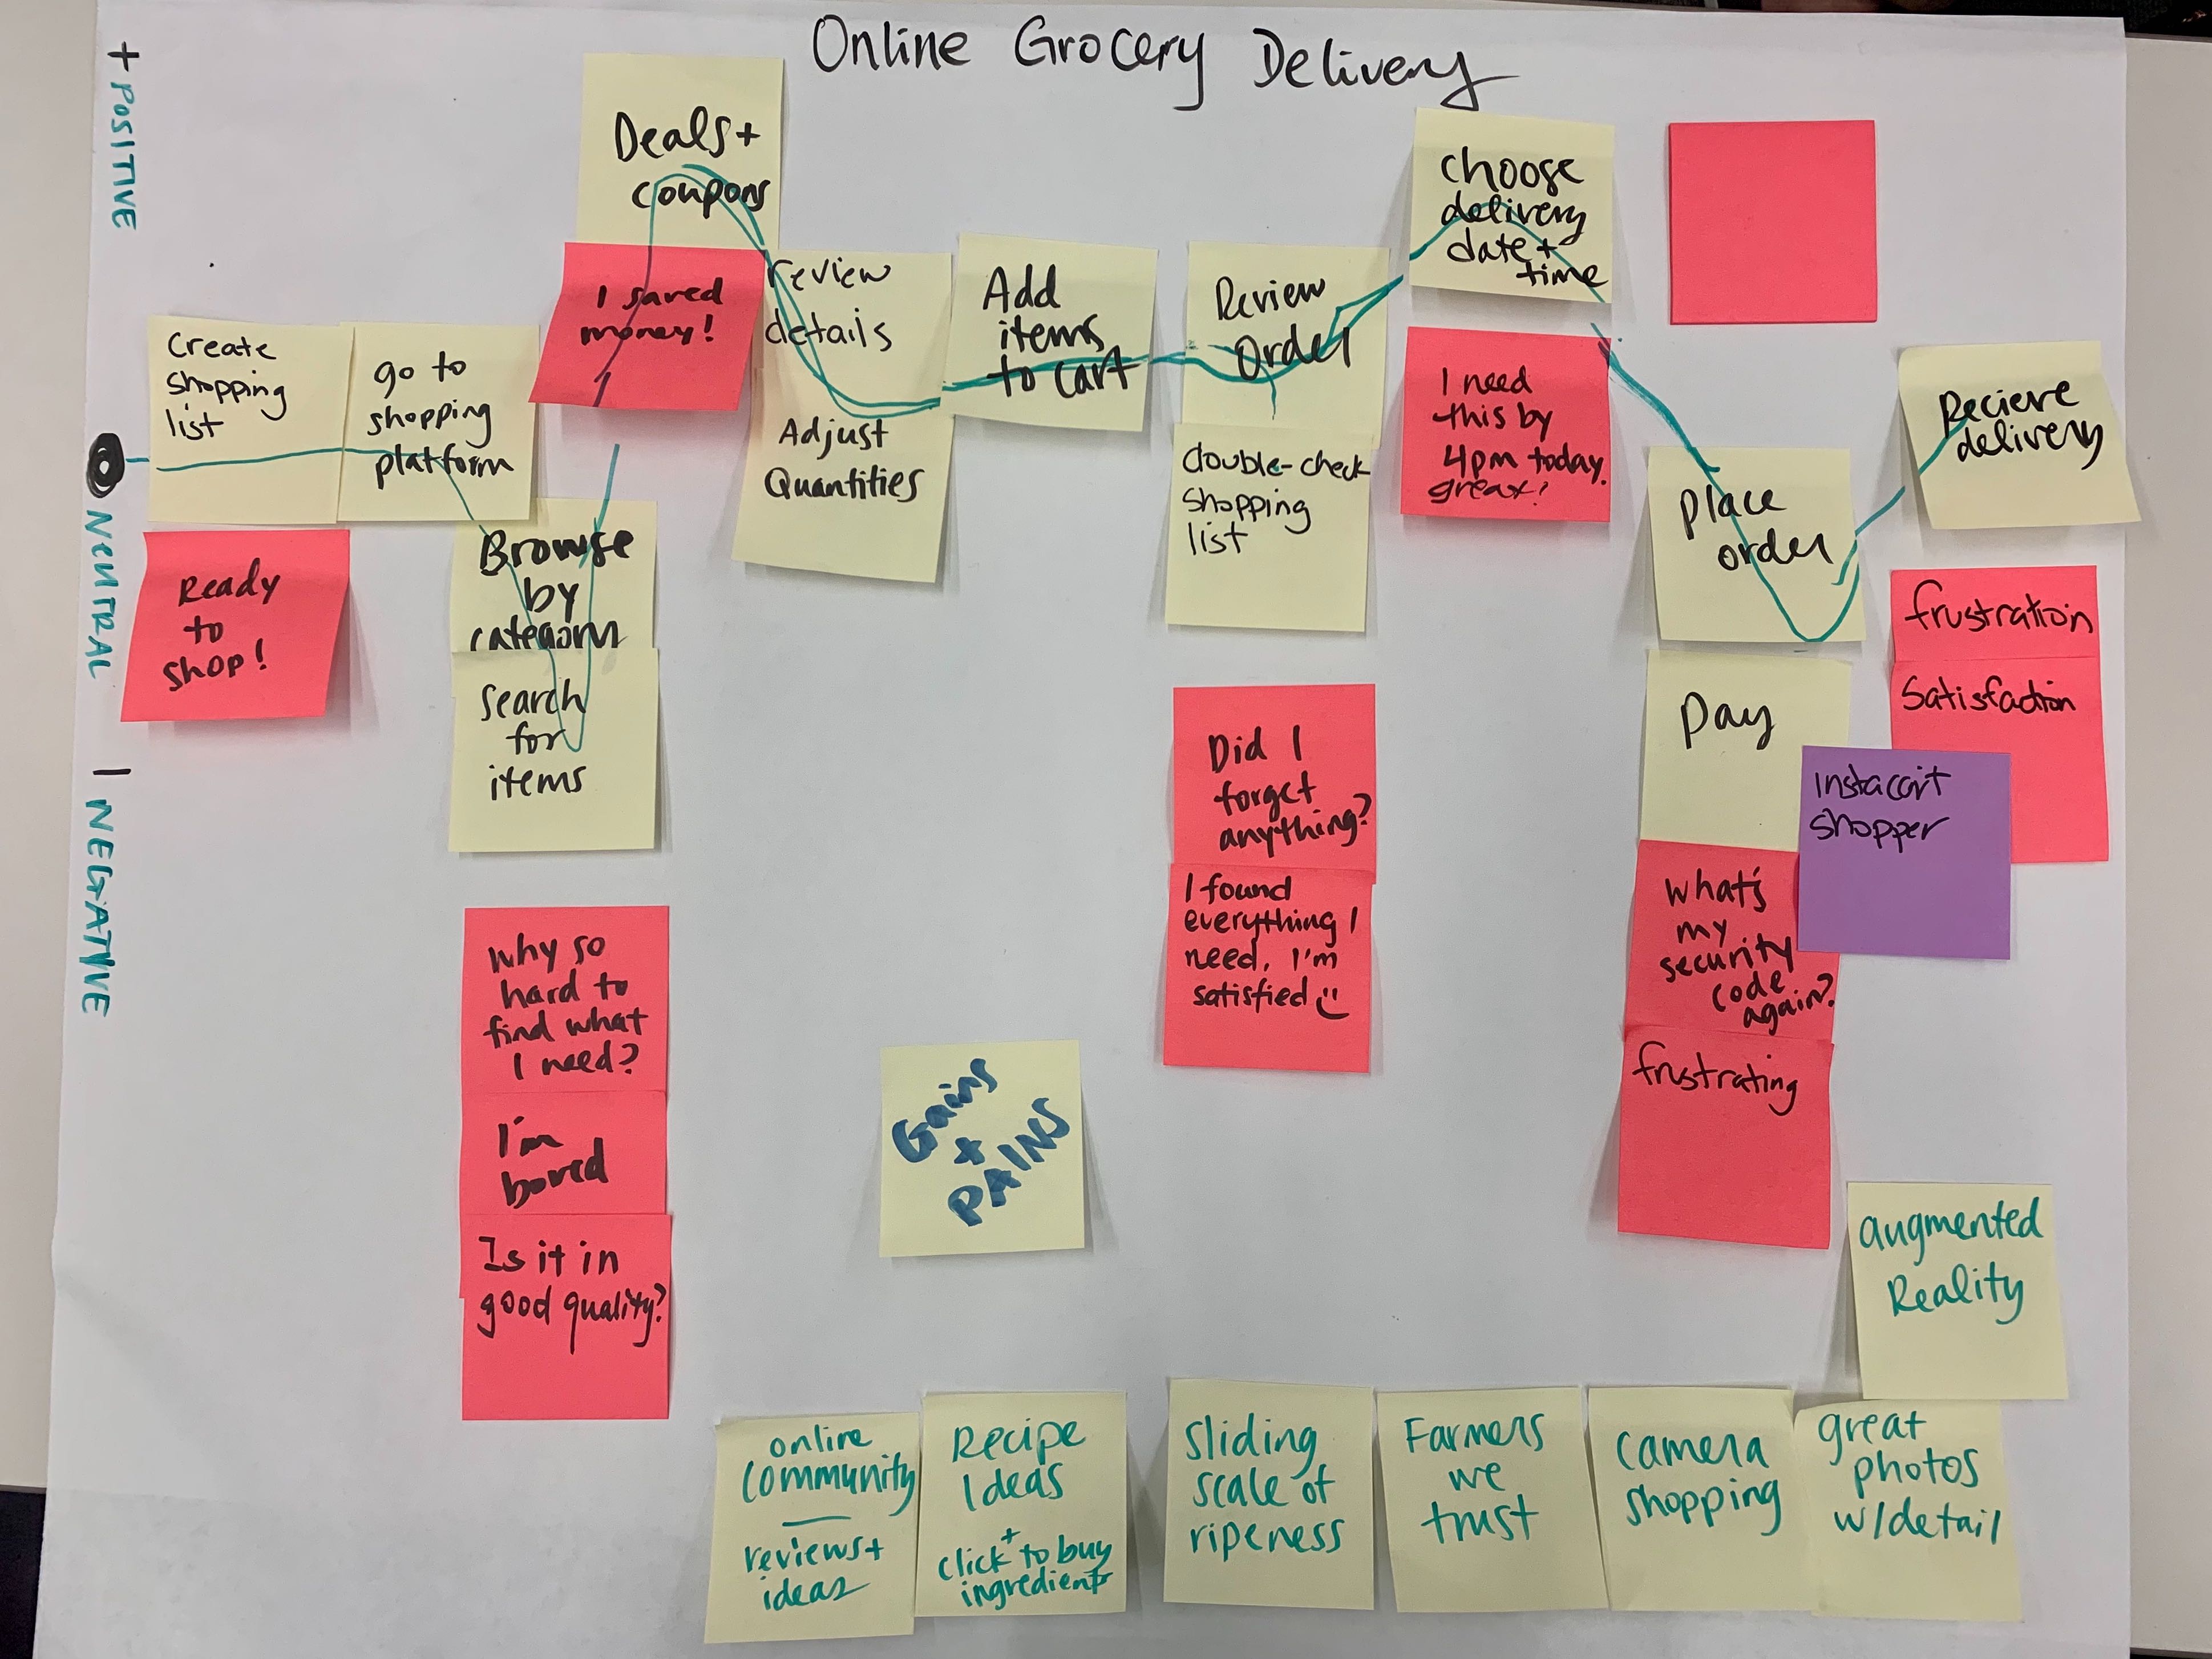 Online Grocery Delivery
+ POSITIVE
NEUTRAL
| NEGATIVE
Create
shopping
list
go to
shopping
platform
Ready
to
shop!
Deals +
coupons
I saved
money!
Browse
by
category
search
for
items
Why so
hard to
find what
I need?
I'm
bored
Is it in
good quality?
review
details
Adjust
Quantities
Add
items
to cart
Review
Order
double-check
shopping
list
Did I
forget
anything?
I found
everything I
need. I'm
satisfied
choose
delivery
date +
time
I need
this by
4pm today.
great!
Place
order
Pay
what's
my
security
code
again?
frustrating
Recieve
delivery
frustration
Satisfaction
Instacart
shopper
Gains
+
PAINS
augmented
Reality
online
community
reviews +
ideas
Recipe
Ideas
+
click to buy
ingredients
Sliding
scale of
ripeness
Farmers
we
trust
camera
shopping
great
photos
w/detail